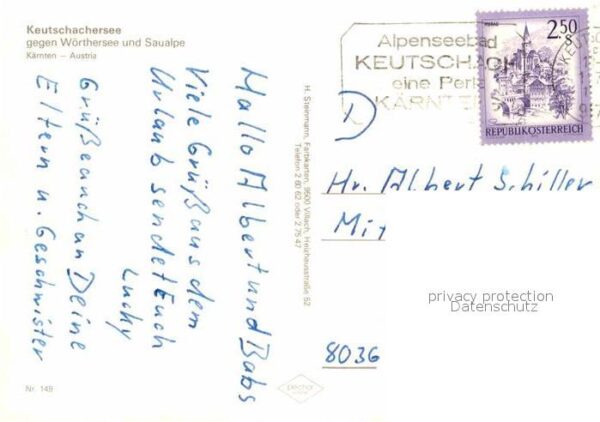 Keutschachersee
gegen Wörthersee und Saualpe
Kärnten — Austria
Hallo Albert und Babs
Viele Grüß aus dem
Urlaub sendet Euch
Lucky
Grüße auch an Deine
Eltern u. Geschwister
Nr. 149
H. Steinmann, Farbkarten, 9500 Villach, Heizhausstraße 62
Telefon 2 60 62 oder 2 75 47
plechar
Alpenseebad
KEUTSCHACH
eine Perle
KÄRNTE
2.50
S
REPUBLIK ÖSTERREICH
KEUTSC
D
Hr. Albert Schiller
8036
privacy protection
Datenschutz